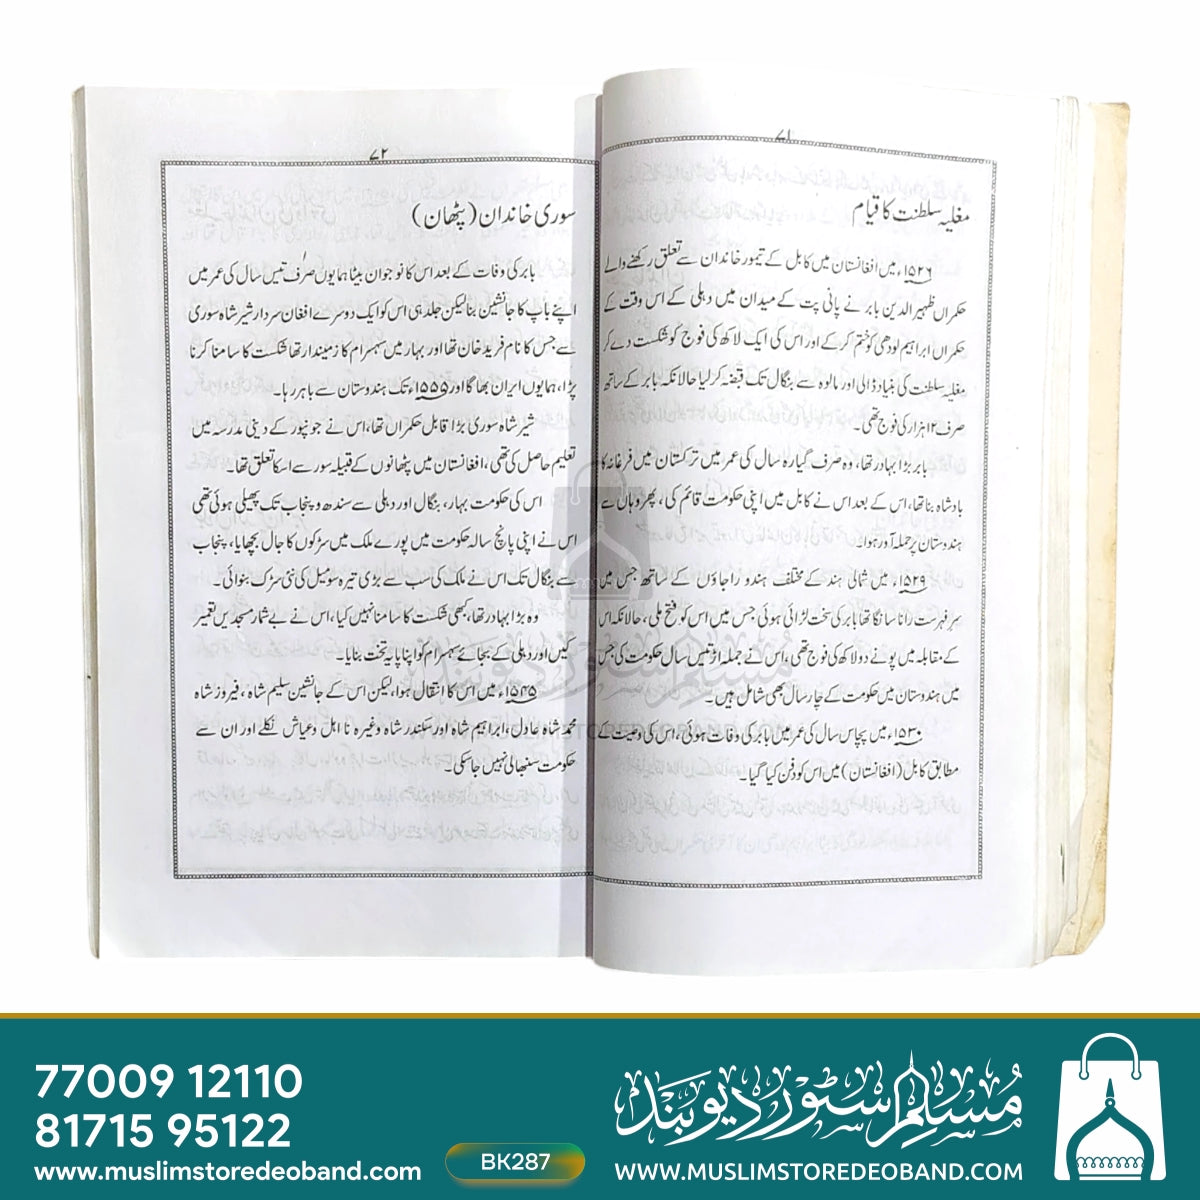 ۷۱
مغلیہ سلطنت کا قیام
۱۵۲۶ء میں افغانستان میں کابل کے تیمور خاندان سے تعلق رکھنے والے
حکمراں ظہیر الدین بابر نے پانی پت کے میدان میں دہلی کے اس وقت کے
حکمراں ابراہیم لودھی کو ختم کر کے اور اس کی ایک لاکھ کی فوج کو شکست دے کر
مغلیہ سلطنت کی بنیاد ڈالی اور مالوہ سے بنگال تک قبضہ کر لیا حالانکہ بابر کے ساتھ
صرف ۱۲ ہزار کی فوج تھی۔
بابر بڑا بہادر تھا، وہ صرف گیارہ سال کی عمر میں ترکستان میں فرغانہ کا
بادشاہ بنا تھا، اس کے بعد اس نے کابل میں اپنی حکومت قائم کی، پھر وہاں سے
ہندوستان پر حملہ آور ہوا۔
۱۵۲۹ء میں شمالی ہند کے مختلف ہندو راجاؤں کے ساتھ جس میں
سر فہرست رانا سانگا تھا بابر کی سخت لڑائی ہوئی جس میں اس کو فتح ملی، حالانکہ اس
کے مقابلہ میں پونے دو لاکھ کی فوج تھی، اس نے جملہ اڑتیس سال حکومت کی جس
میں ہندوستان میں حکومت کے چار سال بھی شامل ہیں۔
۱۵۳۰ء میں پچاس سال کی عمر میں بابر کی وفات ہوئی، اس کی وصیت کے
مطابق کابل (افغانستان) میں اس کو دفن کیا گیا۔
۷۲
سوری خاندان (پٹھان)
بابر کی وفات کے بعد اس کا نوجوان بیٹا ہمایوں صرف تیس سال کی عمر میں
اپنے باپ کا جانشین بنا لیکن جلد ہی اس کو ایک دوسرے افغان سردار شیر شاہ سوری
سے جس کا نام فرید خان تھا اور بہار میں سہسرام کا زمیندار تھا شکست کا سامنا کرنا
پڑا، ہمایوں ایران بھاگا اور ۱۵۵۵ء تک ہندوستان سے باہر رہا۔
شیر شاہ سوری بڑا قابل حکمراں تھا، اس نے جونپور کے دینی مدرسہ میں
تعلیم حاصل کی تھی، افغانستان میں پٹھانوں کے قبیلہ سور سے اسکا تعلق تھا۔
اس کی حکومت بہار، بنگال اور دہلی سے سندھ و پنجاب تک پھیلی ہوئی تھی
اس نے اپنی پانچ سالہ حکومت میں پورے ملک میں سڑکوں کا جال بچھایا، پنجاب
سے بنگال تک اس نے ملک کی سب سے بڑی تیرہ سو میل کی نئی سڑک بنوائی۔
وہ بڑا بہادر تھا، کبھی شکست کا سامنا نہیں کیا، اس نے بے شمار مسجدیں تعمیر
کیں اور دہلی کے بجائے سہسرام کو اپنا پایہ تخت بنایا۔
۱۵۴۵ء میں اس کا انتقال ہوا، لیکن اس کے جانشین سلیم شاہ، فیروز شاہ
محمد شاہ عادل، ابراہیم شاہ اور سکندر شاہ وغیرہ نا اہل و عیاش نکلے اور ان سے
حکومت سنبھالی نہیں جاسکی۔
77009 12110
81715 95122
www.muslimstoredeoband.com
BK287
مسلم سٹور دیوبند
WWW.MUSLIMSTOREDEOBAND.COM